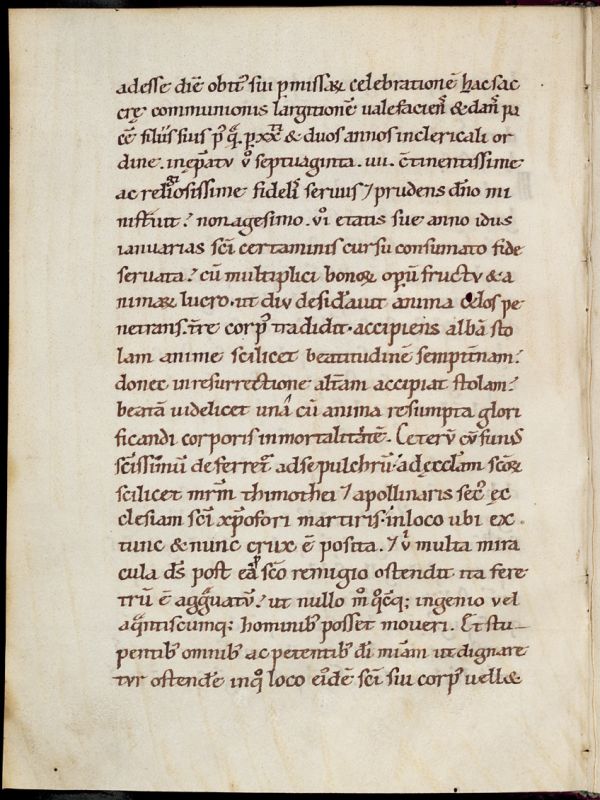 adesse diē obit᷑ sui p̱missaꝝ celebrationē hac sac
cr̄ę communionis largitionē ualefacien̄ & dan̄ pa
cē filiis suis p᷑ qͣ. p̱ xxͭⁱ & duos annos in clericali or
dine. in ep̄atu ů septuaginta. uii. c̄tinentissime
ac religiosissime fideliͬ seruus ⁊ prudens dn̄o mi
nistrauit? nonagesimo. vi̊ etatis sue anno idus
ianuarias sc̄i certaminis cursu consumato fide
seruata? cū multiplici bonoꝝ opeꝝ fructu & a
nimaꝝ lucro. ut diu desid̓auit anima celos pe
netrans. tr̄e corp᷒ tradidit. accipiens albā sto
lam anime scilicet beatitudinē sempit̓nam?
donec in resurrectione alt̓am accipiat stolam?
beatā uidelicet unā cū anima resumpta glori
ficandi corporis inmortalitatē. Ceterū cū funus
sc̄issimū deferret᷑ ad sepulchrū. ad ęcclām sc̄oꝝ
scilicet mr̄m thimothei ⁊ apollinaris sec᷒ ęc
clesiam sc̄i xp̄ofori martiris. in loco ubi ex
tunc & nunc crux ē posita. ⁊ uͥ multa mira
cula d̄s post eā p̱ sc̄o remigio ostendit ita fere
trū ē aggͣuatū? ut nullo m̊ qͦcūq; ingenio vel
aqͣntiscumq; hominib᷒ posset moueri. Et stu-
pentib᷒ omnib᷒ ac petentib᷒ dī miām ut dignare
tur ostend̓e in qͦ loco eid̄e sc̄i sui corp᷒ uell&